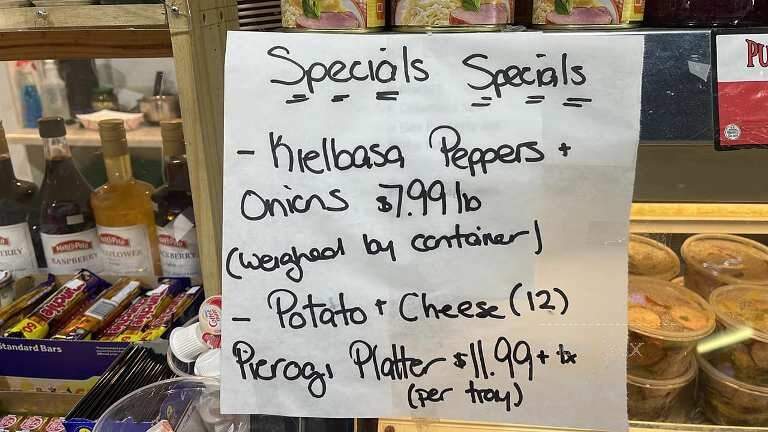 Specials Specials
- Kielbasa Peppers +
Onions $7.99 lb
(weighed by container)
- Potato + Cheese (12)
Pierogi Platter $11.99 + tx
(per tray)
RASPBERRY
Standard Bars